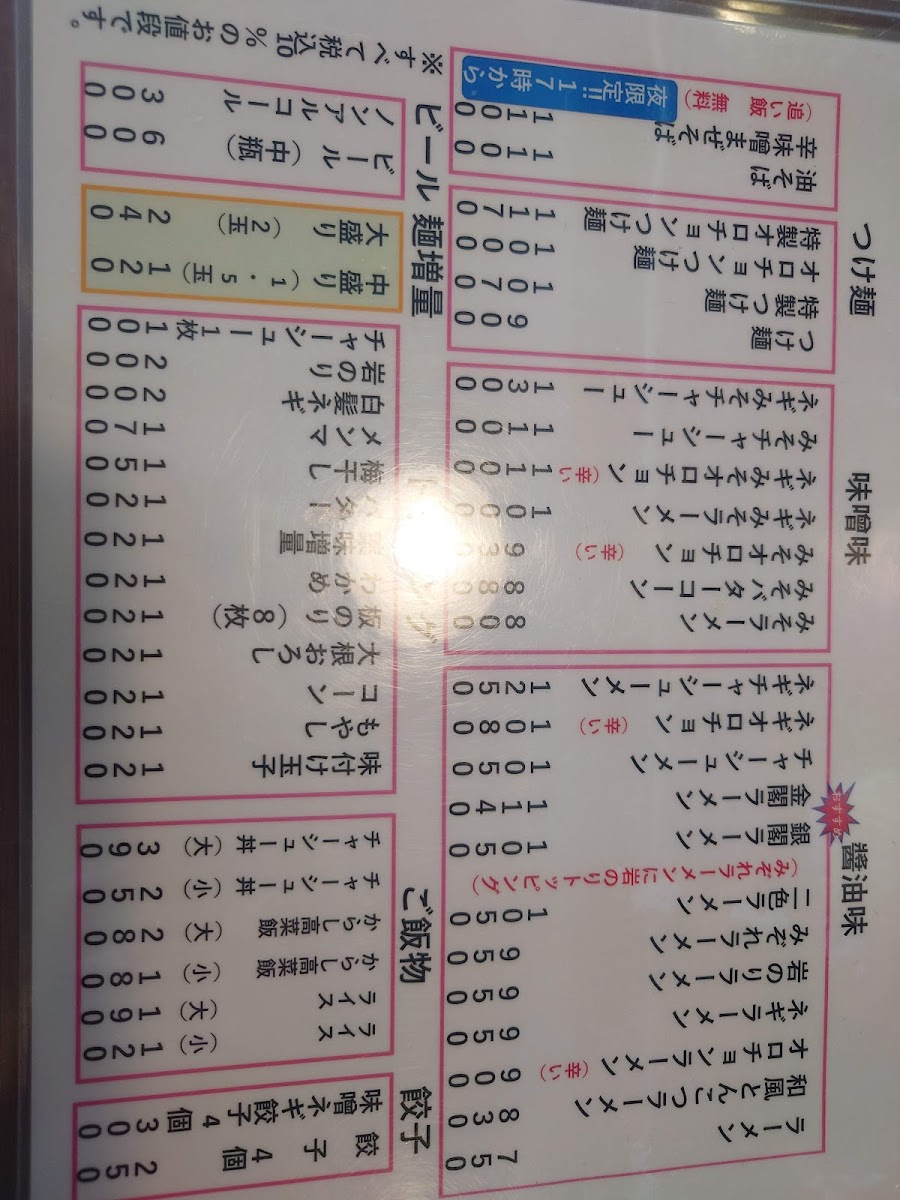 おすすめ
醬油味
ラーメン 750
和風とんこつラーメン 830
オロチョンラーメン（辛い） 900
ネギラーメン 950
岩のりラーメン 950
みぞれラーメン 950
二色ラーメン 1050
（みぞれラーメンに岩のりトッピング）
銀閣ラーメン 1050
金閣ラーメン 1140
チャーシューメン 1050
ネギオロチョン（辛い） 1080
ネギチャーシューメン 1250
味噌味
みそラーメン 800
みそバターコーン 880
みそオロチョン（辛い） 930
ネギみそラーメン 1000
ネギみそオロチョン（辛い） 1100
みそチャーシュー 1100
ネギみそチャーシュー 1300
つけ麺
つけ麺 900
特製つけ麺 1070
オロチョンつけ麺 1000
特製オロチョンつけ麺 1170
油そば 1100
辛味噌まぜそば 1100
（追い飯無料）
夜限定!!17時から
餃子
餃子4個 250
味噌ネギ餃子4個 300
ご飯物
ライス（小） 120
ライス（大） 190
からし高菜飯（小） 180
からし高菜飯（大） 280
チャーシュー丼（小） 250
チャーシュー丼（大） 390
味付け玉子 120
もやし 120
コーン 120
大根おろし 120
板のり（8枚） 120
わかめ 120
薬味増量 120
バター 120
梅干し 150
メンマ 170
白髪ネギ 200
岩のり 200
チャーシュー1枚 100
麺増量
中盛り（1・5玉） 120
大盛り（2玉） 240
ビール
ビール（中瓶） 600
ノンアルコール 300
※すべて税込10%のお値段です。